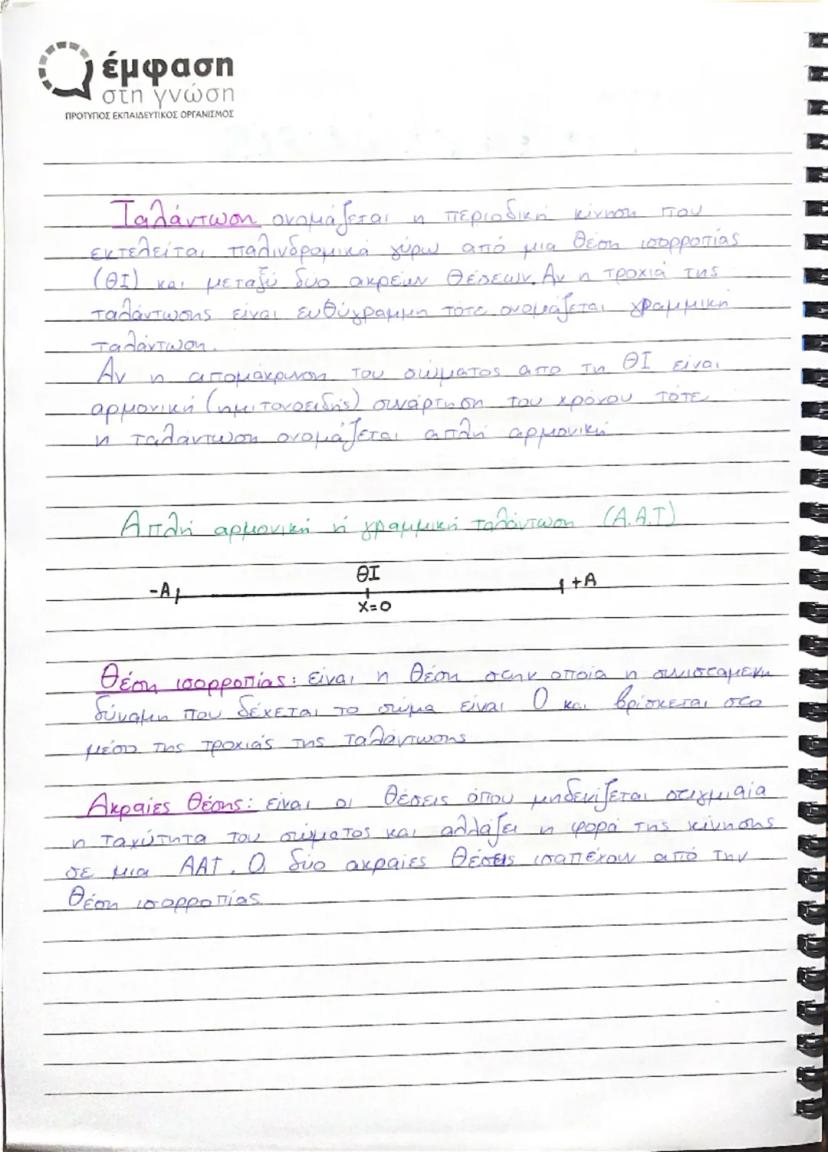 έμφαση
στη γνώση
ΠΡΟΤΥΠΟΣ ΕΚΠΑΙΔΕΥΤΙΚΟΣ ΟΡΓΑΝΙΣΜΟΣ
Ταλάντωση ονομάζεται η περιοδική κίνηση που
εκτελείται παλινδρομικά γύρω από μια θέση ισορροπίας
(ΘΙ) και μεταξύ δυο ακρέων θέσεων. Αν η τροχιά της
ταλάντωσης είναι ευθύγραμμη τότε ονομάζεται γραμμική
ταλάντωση.
Αν η απομάκρυνση του σώματος απο τη ΘΙ είναι
αρμονική (ημιτονοειδής) συνάρτηση του χρόνου τότε
η ταλάντωση ονομάζεται απλή αρμονική
Απλή αρμονική ή γραμμική ταλάντωση (Α.Α.Τ)
ΘΙ
-Α +Α
x=0
Θέση ισορροπίας: είναι η θέση στην οποία η συνισταμενη
δύναμη που δέχεται το σώμα είναι 0 και βρίσκεται στο
μέσο της τροχιάς της ταλάντωσης
Ακραίες θέσης: είναι οι θέσεις όπου μηδενίζεται στιγμιαία
η ταχύτητα του σώματος και αλλάζει η φορά της κίνησης
σε μια ΑΑΤ. Οι δύο ακραίες θέσεις ισαπέχουν από την
θέση ισορροπίας